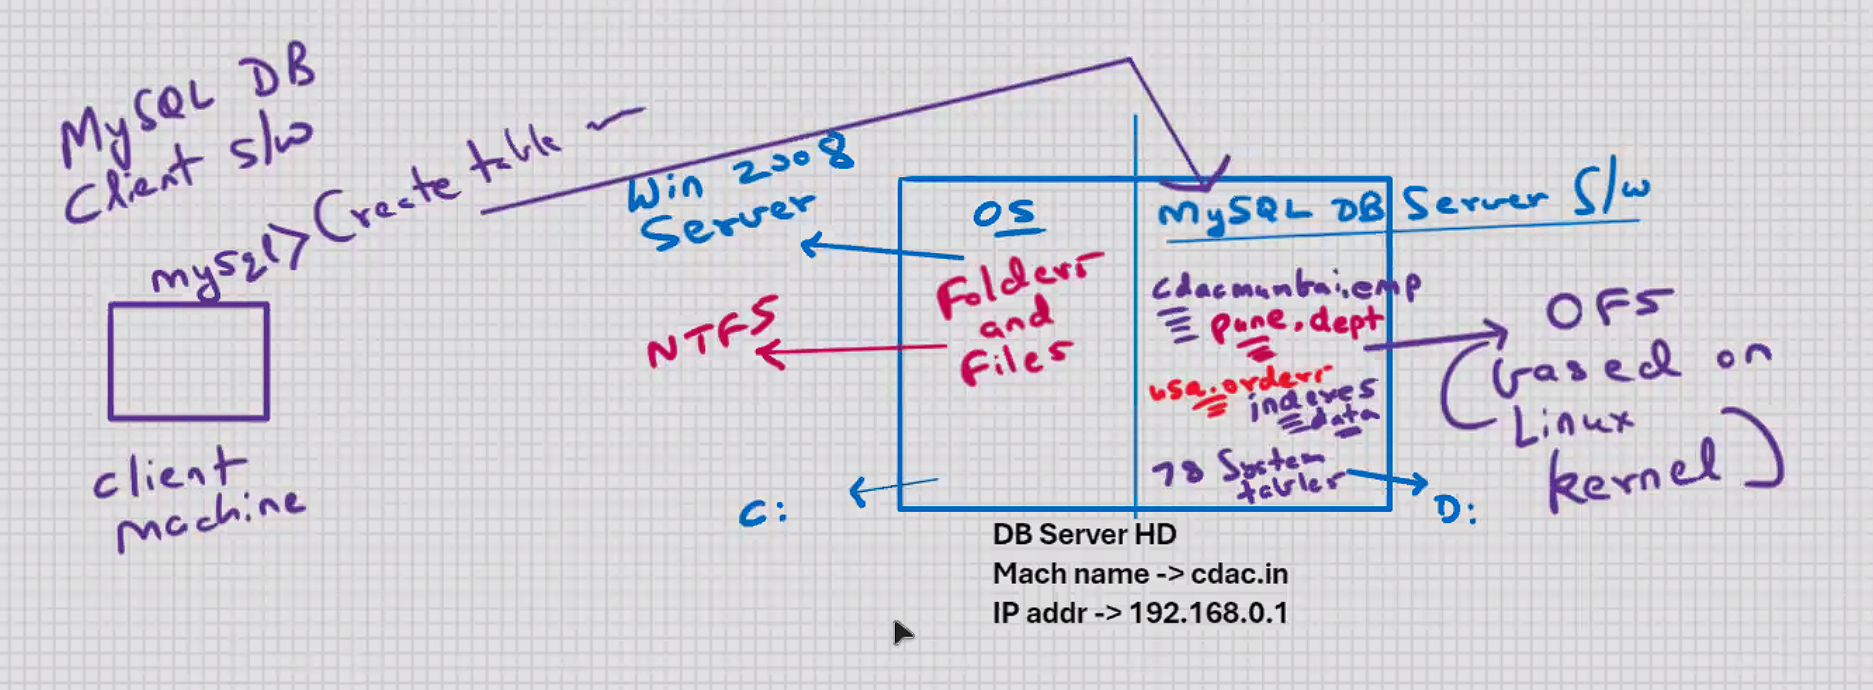 MySQL DB
Client S/w
mysql> Create table
client
machine
Win 2008
Server
NTFS
C:
OS
Folders
and
Files
MySQL DB Server S/w
cdacmumbai.emp
pune.dept
usa.orders
indexes
data
78 System
tables
D:
OFS
(based on
Linux
kernel)
DB Server HD
Mach name -> cdac.in
IP addr -> 192.168.0.1